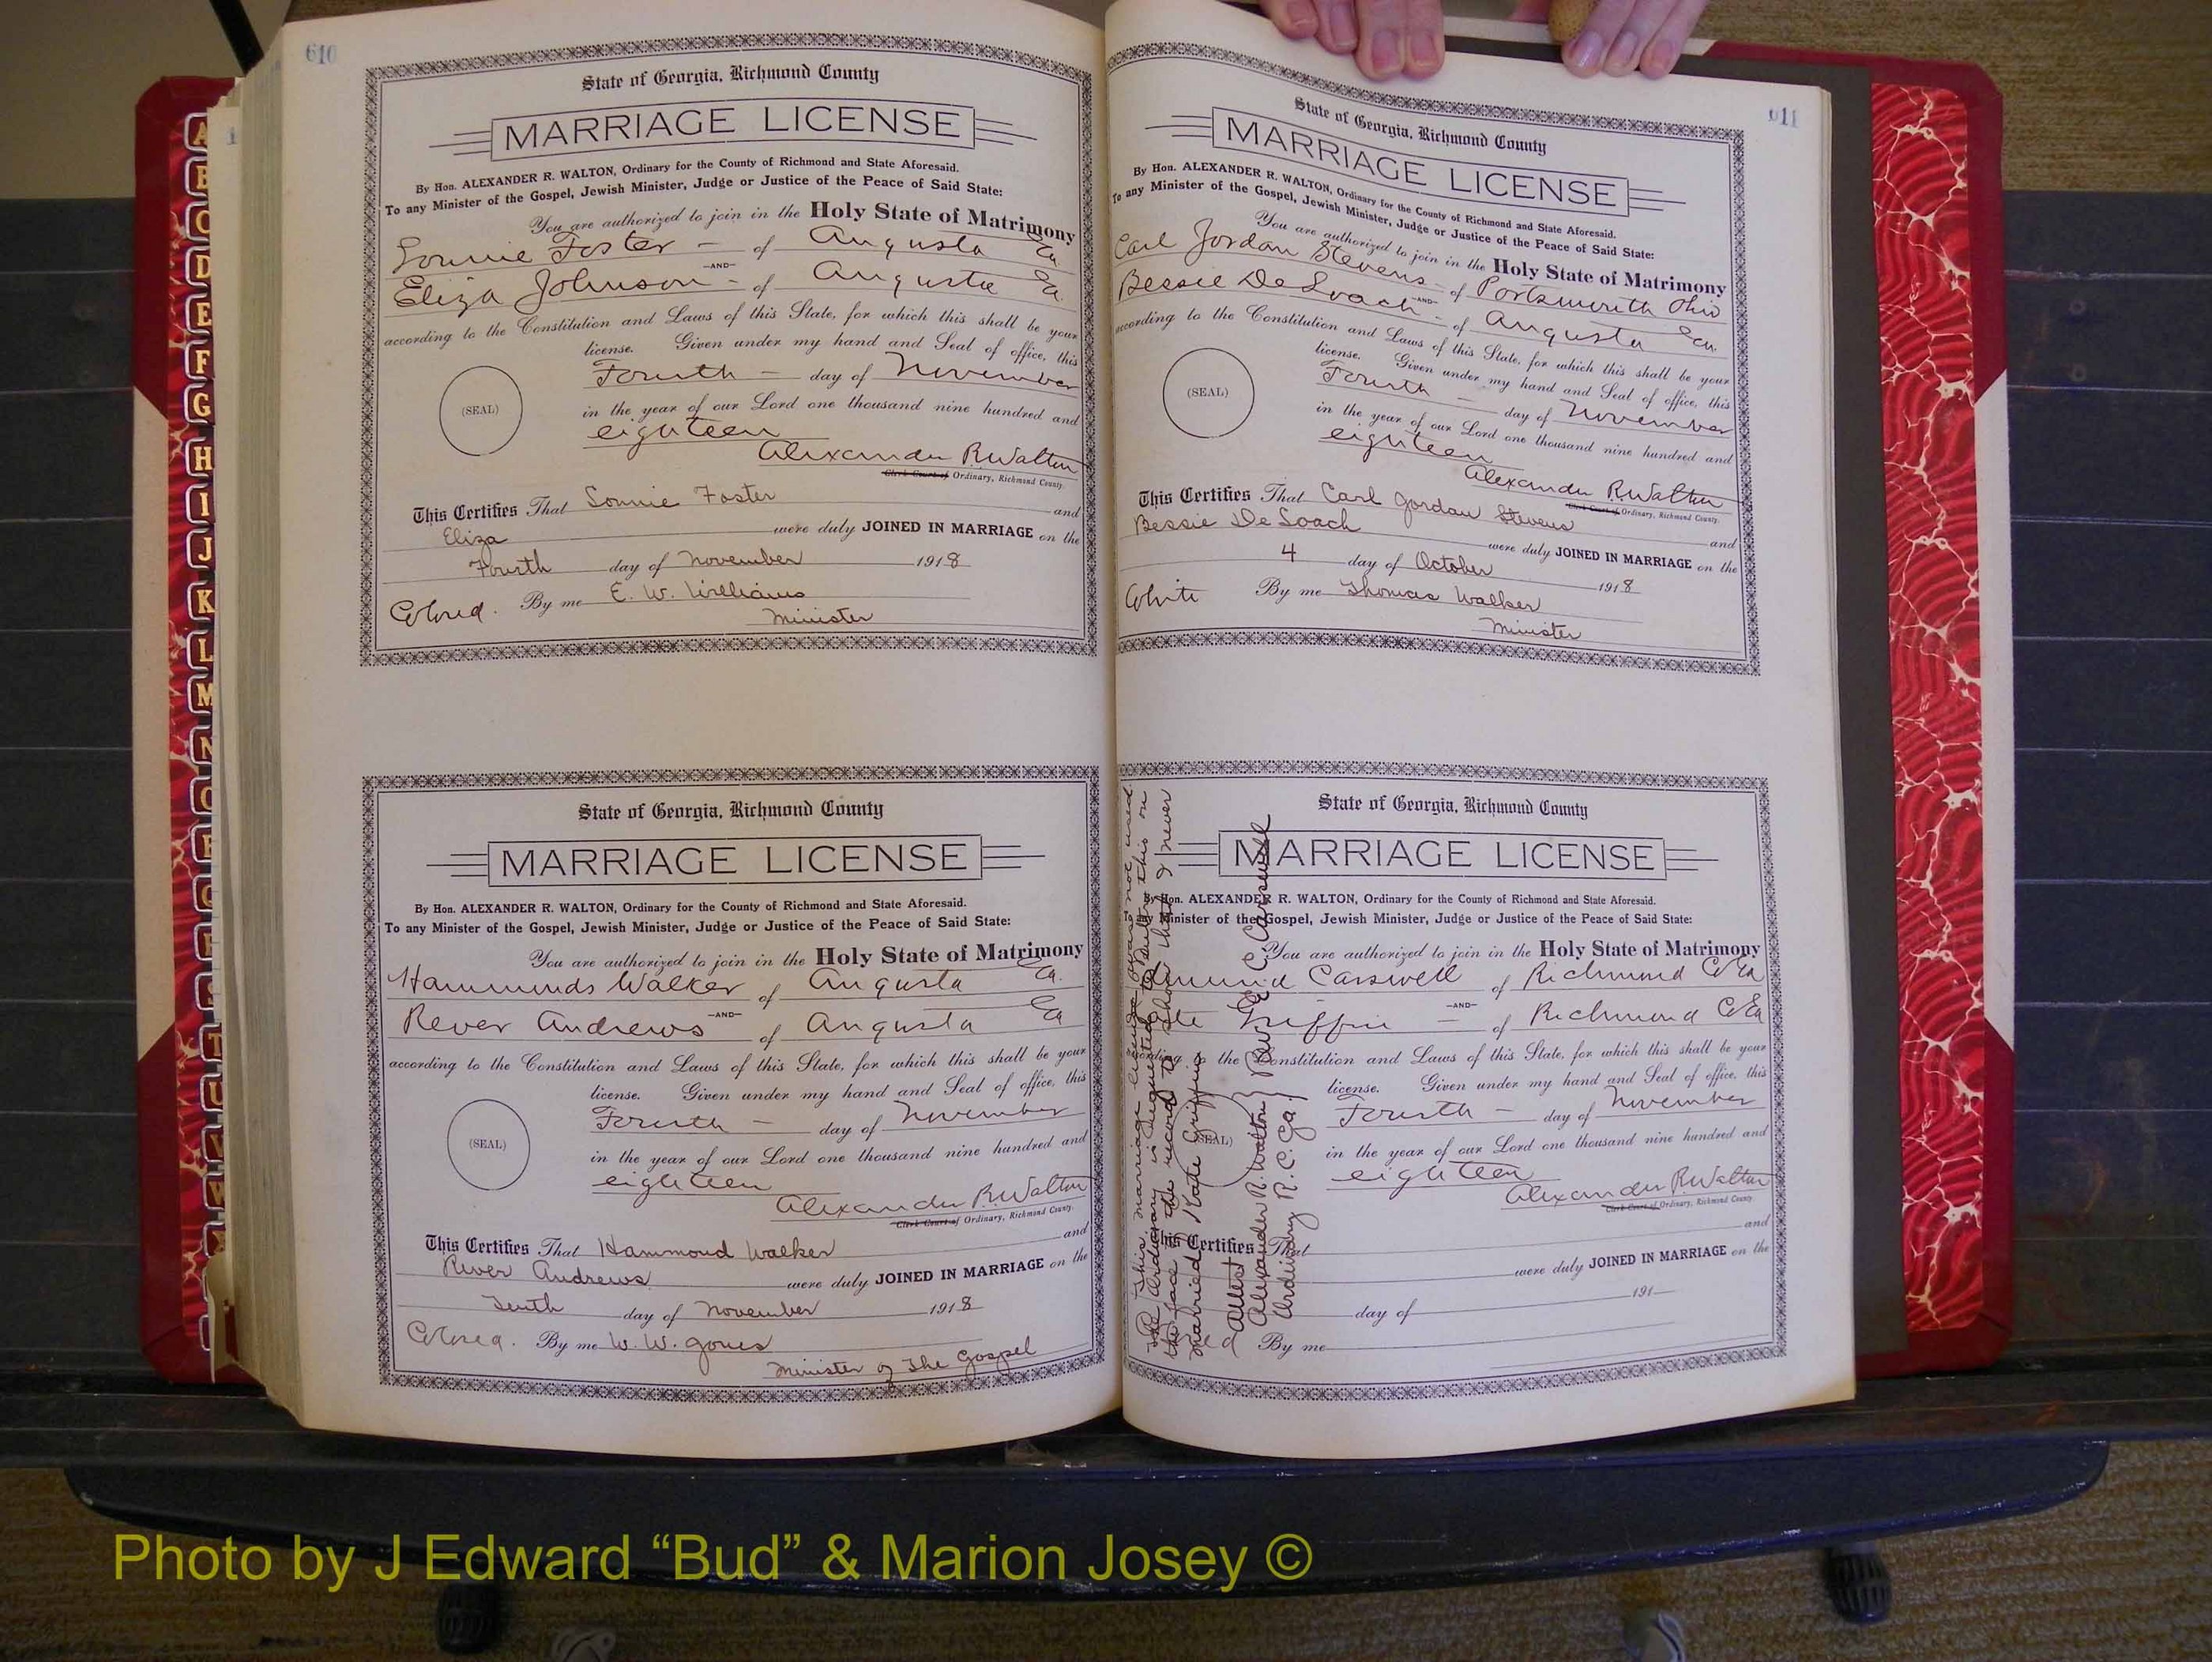 610
State of Georgia, Richmond County
MARRIAGE LICENSE
By Hon. ALEXANDER R. WALTON, Ordinary for the County of Richmond and State Aforesaid.
To any Minister of the Gospel, Jewish Minister, Judge or Justice of the Peace of Said State:
You are authorized to join in the Holy State of Matrimony
Lonnie Foster - of Augusta Ga
—AND—
Eliza Johnson - of Augusta Ga
according to the Constitution and Laws of this State, for which this shall be your
license. Given under my hand and Seal of office, this
Fourth - day of November
(SEAL)
in the year of our Lord one thousand nine hundred and
eighteen
Alexander R Walton
Clerk Court of Ordinary, Richmond County.
This Certifies That Lonnie Foster and
Eliza were duly JOINED IN MARRIAGE on the
Fourth day of November 1918
Colored. By me E. W. Williams
Minister
State of Georgia, Richmond County
MARRIAGE LICENSE
By Hon. ALEXANDER R. WALTON, Ordinary for the County of Richmond and State Aforesaid.
To any Minister of the Gospel, Jewish Minister, Judge or Justice of the Peace of Said State:
You are authorized to join in the Holy State of Matrimony
Hammonds Walker of Augusta Ga.
—AND—
Rever Andrews of Augusta Ga
according to the Constitution and Laws of this State, for which this shall be your
license. Given under my hand and Seal of office, this
Fourth - day of November
(SEAL)
in the year of our Lord one thousand nine hundred and
eighteen
Alexander R Walton
Clerk Court of Ordinary, Richmond County.
This Certifies That Hammond Walker and
River Andrews were duly JOINED IN MARRIAGE on the
Tenth day of November 1918
Colored. By me W. W. Jones
Minister of The Gospel
611
State of Georgia, Richmond County
MARRIAGE LICENSE
By Hon. ALEXANDER R. WALTON, Ordinary for the County of Richmond and State Aforesaid.
To any Minister of the Gospel, Jewish Minister, Judge or Justice of the Peace of Said State:
You are authorized to join in the Holy State of Matrimony
Carl Jordan Stevens - of Portsmouth Ohio
—AND—
Bessie De Loach - of Augusta Ga.
according to the Constitution and Laws of this State, for which this shall be your
license. Given under my hand and Seal of office, this
Fourth - day of November
(SEAL)
in the year of our Lord one thousand nine hundred and
eighteen
Alexander R. Walton
Clerk Court of Ordinary, Richmond County.
This Certifies That Carl Jordan Stevens and
Bessie De Loach were duly JOINED IN MARRIAGE on the
4 day of October 1918
White By me Thomas Walker
Minister
State of Georgia, Richmond County
MARRIAGE LICENSE
By Hon. ALEXANDER R. WALTON, Ordinary for the County of Richmond and State Aforesaid.
To any Minister of the Gospel, Jewish Minister, Judge or Justice of the Peace of Said State:
You are authorized to join in the Holy State of Matrimony
Carswell of Richmond Co Ga
—AND—
Griffin - of Richmond Co Ga
according to the Constitution and Laws of this State, for which this shall be your
license. Given under my hand and Seal of office, this
Fourth - day of November
(SEAL)
in the year of our Lord one thousand nine hundred and
eighteen
Alexander R Walton
Clerk Court of Ordinary, Richmond County.
This Certifies That and
were duly JOINED IN MARRIAGE on the
day of 191
By me
This marriage license was not used
the Ordinary is requested to this on
the face the record to show that I never
married Kate Griffin
Attest
Alexander R. Walton
Ordinary R. C. Ga.
Carswell
A
D
E
F
G
H
I
J
K
L
M
N
Photo by J Edward “Bud” & Marion Josey ©